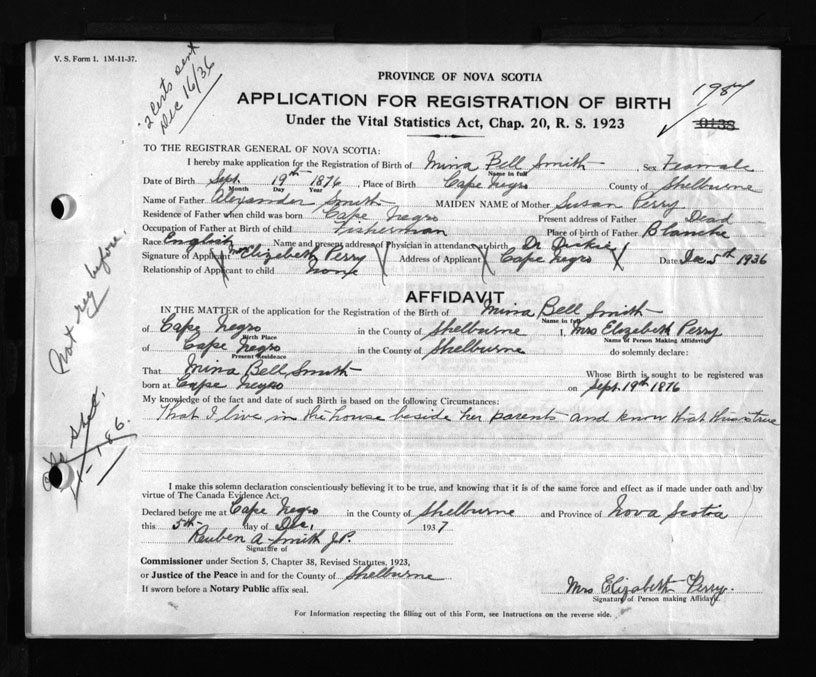 V. S. Form 1. 1M-11-37.
2 Certs sent
Dec 16/36
PROVINCE OF NOVA SCOTIA
APPLICATION FOR REGISTRATION OF BIRTH
1987
Under the Vital Statistics Act, Chap. 20, R. S. 1923
0138
TO THE REGISTRAR GENERAL OF NOVA SCOTIA:
I hereby make application for the Registration of Birth of Mina Bell Smith, Sex Female
Name in full
Date of Birth Sept 19th 1876, Place of Birth Cape Negro County of Shelburne
Month Day Year
Name of Father Alexander Smith MAIDEN NAME of Mother Susan Perry
Residence of Father when child was born Cape Negro Present address of Father Dead
Occupation of Father at Birth of child Fisherman Place of birth of Father Blanche
Race English Name and present address of Physician in attendance at birth Dr Dickie
Signature of Applicant Mrs Elizabeth Perry Address of Applicant Cape Negro Date Dec 5th 1936
Relationship of Applicant to child None
Not reg before.
AFFIDAVIT
IN THE MATTER of the application for the Registration of the Birth of Mina Bell Smith
Name in full
of Cape Negro in the County of Shelburne I, Mrs Elizabeth Perry
Birth Place Name of Person Making Affidavit
of Cape Negro in the County of Shelburne do solemnly declare:
Present Residence
That Mina Bell Smith Whose Birth is sought to be registered was
born at Cape Negro on Sept. 19th 1876
My knowledge of the fact and date of such Birth is based on the following Circumstances:
That I live in the house beside her parents and know that this is true
4-186.
I make this solemn declaration conscientiously believing it to be true, and knowing that it is of the same force and effect as if made under oath and by
virtue of The Canada Evidence Act.
Declared before me at Cape Negro in the County of Shelburne and Province of Nova Scotia
this 5th day of Dec, 1937
Reuben A. Smith J.P.
Signature of
Commissioner under Section 5, Chapter 38, Revised Statutes, 1923,
or Justice of the Peace in and for the County of Shelburne
If sworn before a Notary Public affix seal.
Mrs Elizabeth Perry.
Signature of Person making Affidavit.
For Information respecting the filling out of this Form, see Instructions on the reverse side.